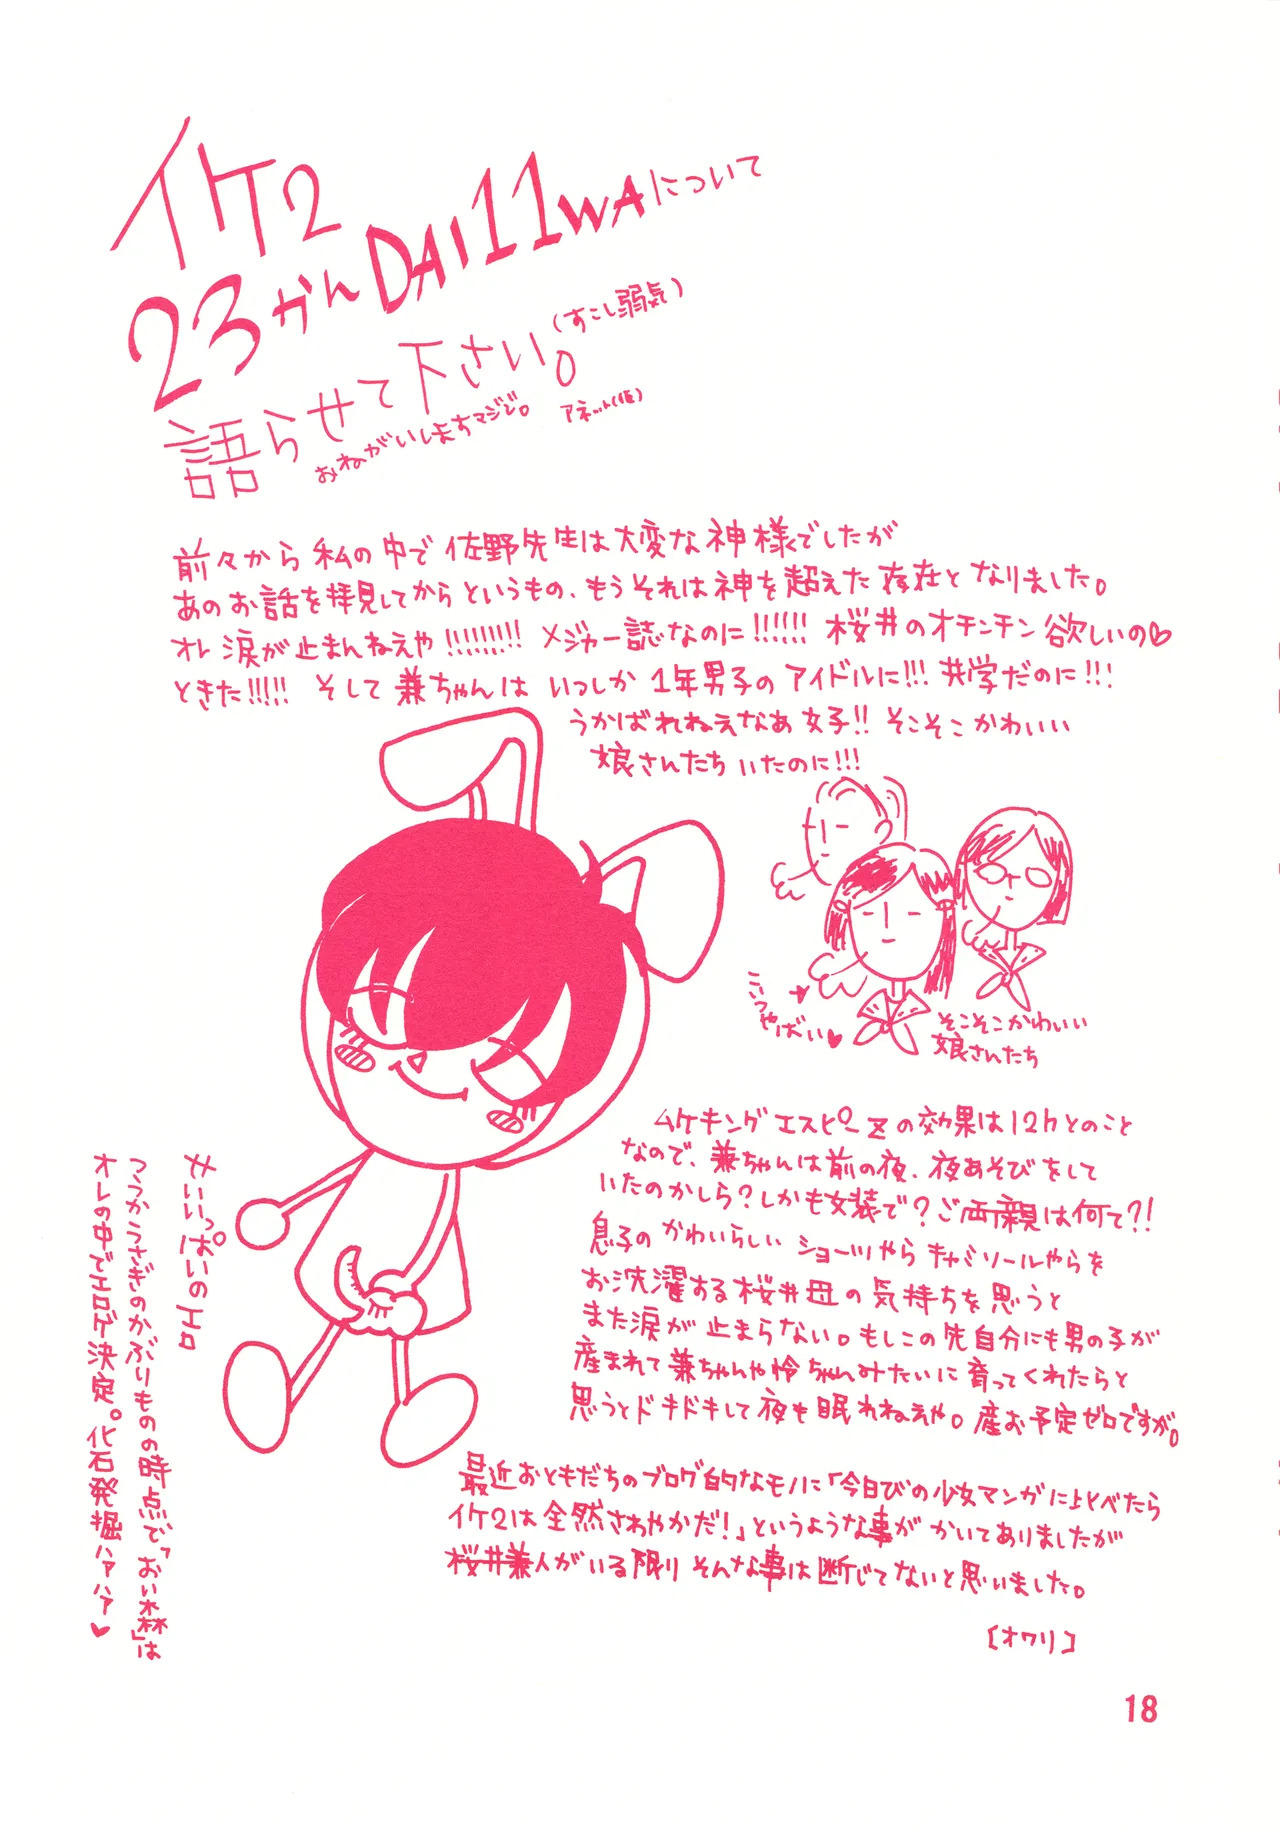 イケ2
23かんDAI11WAについて
語らせて下さい。(すこし弱気)
おねがいしますマジで。 アネット(仮)
前々から私の中で佐野先生は大変な神様でしたが
あのお話を拝見してからというもの、もうそれは神を超えた存在となりました。
オレ涙が止まんねえや!!!!!!!!! メジャー誌なのに!!!!!! 桜井のオチンチン欲しいの♡
ときた!!!!! そして兼ちゃんは いつしか 1年男子のアイドルに!!! 共学だのに!!!
うかばれねえなあ女子!! そこそこかわいい
娘さんたち いたのに!!!
こいつ
やばい♥
そこそこかわいい
娘さんたち
ムケキングエスピーZの効果は12hとのこと
なので、兼ちゃんは前の夜、夜あそびをして
いたのかしら?しかも女装で?ご両親は何て?!
息子の かわいらしい ショーツやら キャミソールやらを
お洗濯する桜井母の気持ちを思うと
また涙が止まらない。もしこの先自分にも男の子が
産まれて兼ちゃんや怜ちゃんみたいに育ってくれたらと
思うとドキドキして夜も眠れねえや。産お予定ゼロですが。
最近おともだちのブログ的なモノに「今日びの少女マンガに比べたら
イケ2は全然さわやかだ!」というような事がかいてありましたが
桜井兼人がいる限り そんな事は断じてないと思いました。
[オワリ]
せいいっぱいのエロ
つうかうさぎのかぶりものの時点で「おい森」は
オレの中でエロゲ決定。化石発掘ハァハァ♥
18